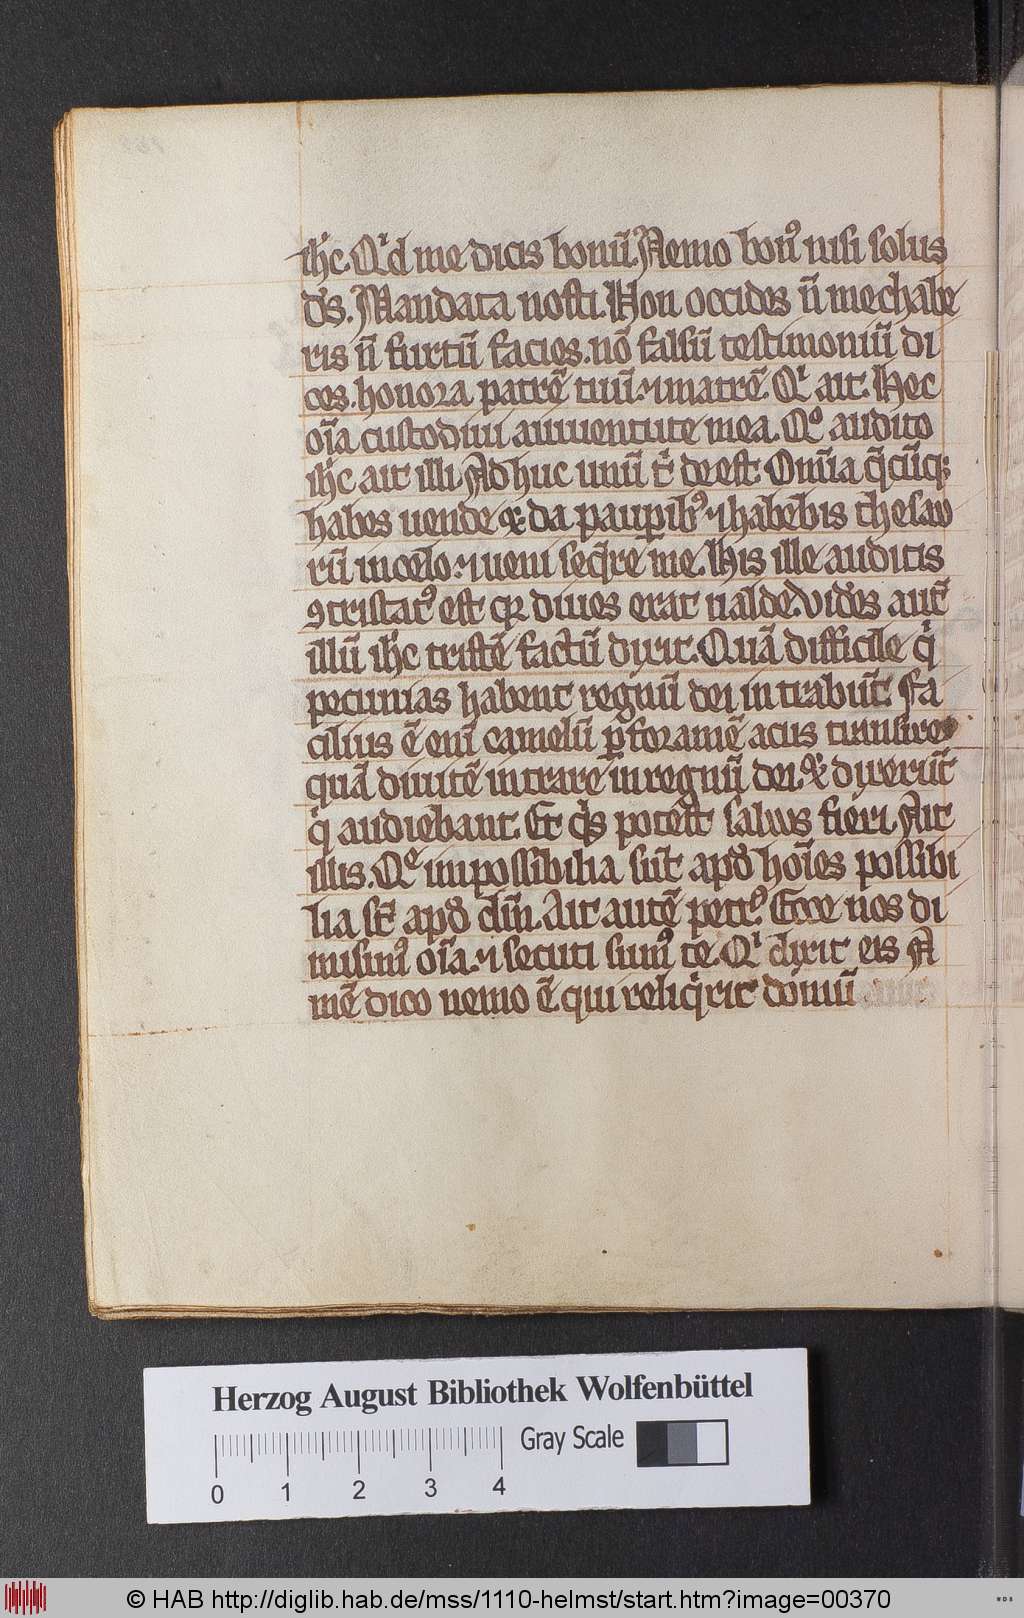 ih̅c. Qͥd me dicis bonū. Nemo bonꝰ nisi solus
ds̅. Mandata nosti. Non occides n̄ mechabe
ris n̄ furtū facies. nō falsū testimoniū di
ces. honora patrē tuū. ⁊ matrē. Qͥ ait. Hec
oīa custodiui aiuuentute mea. Qͦ audito
ih̅c ait illi. Adhuc unū tͥ deest. Omīa q̄cūqꝫ
habes uende ⁊ da pauꝑibꝰ ⁊ habebis thesau
rū in celo. ⁊ ueni seq̄re me. His ille auditis
ꝯtristatꝰ est qꝛ diues erat ualde. Vidēs aut̄
illū ih̅c tristē factū dixit. Quā difficile qͥ
pecunias habent regnū dei intrabūt. Fa
cilius ē eni̅ camelū ꝑ foramē acus transire
quā diuitē intrare in regnū dei. Et dixerūt
qͥ audiebant. Et qͥs potest saluus fieri. Ait
illis. Qͤ impossibilia sūt apđ hoīes possibi
lia st̄ apđ dm̅. Ait autē petrꝰ. Ecce nos di
misimꝰ oīa. ⁊ secuti sumꝰ te. Qͥ dixit eis A
mē dico nemo ē qui reliq̄rit domū
Herzog August Bibliothek Wolfenbüttel
Gray Scale
0 1 2 3 4
© HAB http://diglib.hab.de/mss/1110-helmst/start.htm?image=00370